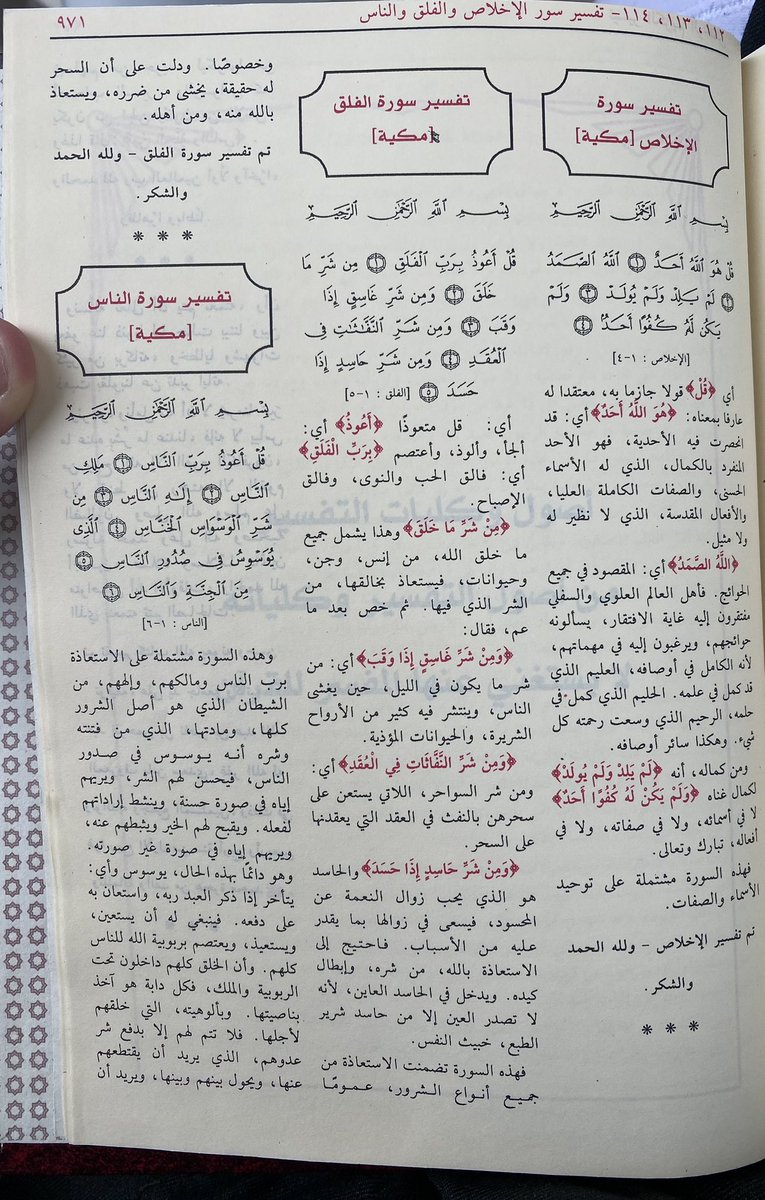 ١١٢، ١١٣، ١١٤- تفسير سور الإخلاص والفلق والناس
٩٧١
تفسير سورة
الإخلاص [مكية]
بِسْمِ اللَّهِ الرَّحْمَٰنِ الرَّحِيمِ
قُلْ هُوَ اللَّهُ أَحَدٌ ۝١ اللَّهُ الصَّمَدُ
۝٢ لَمْ يَلِدْ وَلَمْ يُولَدْ ۝٣ وَلَمْ
يَكُن لَّهُ كُفُوًا أَحَدٌ ۝٤
[الإخلاص : ١-٤]
أي ﴿قُلْ﴾ قولا جازما به، معتقدا له
عارفا بمعناه: ﴿هُوَ اللَّهُ أَحَدٌ﴾ أي: قد
انحصرت فيه الأحدية، فهو الأحد
المنفرد بالكمال، الذي له الأسماء
الحسنى، والصفات الكاملة العليا،
والأفعال المقدسة، الذي لا نظير له
ولا مثيل.
﴿اللَّهُ الصَّمَدُ﴾ أي: المقصود في جميع
الحوائج. فأهل العالم العلوي والسفلي
مفتقرون إليه غاية الافتقار، يسألونه
حوائجهم، ويرغبون إليه في مهماتهم،
لأنه الكامل في أوصافه، العليم الذي
قد كمل في علمه. الحليم الذي كمل في
حلمه، الرحيم الذي وسعت رحمته كل
شيء. وهكذا سائر أوصافه.
ومن كماله، أنه ﴿لَمْ يَلِدْ وَلَمْ يُولَدْ﴾
لكمال غناه ﴿وَلَمْ يَكُنْ لَهُ كُفُوًا أَحَدٌ﴾
لا في أسمائه، ولا في صفاته، ولا في
أفعاله، تبارك وتعالى.
فهذه السورة مشتملة على توحيد
الأسماء والصفات.
تم تفسير الإخلاص - ولله الحمد
والشكر.
* * *
تفسير سورة الفلق
[مكية]
بِسْمِ اللَّهِ الرَّحْمَٰنِ الرَّحِيمِ
قُلْ أَعُوذُ بِرَبِّ الْفَلَقِ ۝١ مِن شَرِّ مَا
خَلَقَ ۝٢ وَمِن شَرِّ غَاسِقٍ إِذَا
وَقَبَ ۝٣ وَمِن شَرِّ النَّفَّاثَاتِ فِي
الْعُقَدِ ۝٤ وَمِن شَرِّ حَاسِدٍ إِذَا
حَسَدَ ۝٥ [الفلق : ١-٥]
أي: قل متعوذًا ﴿أَعُوذُ﴾ أي:
ألجأ، وألوذ، وأعتصم ﴿بِرَبِّ الْفَلَقِ﴾
أي: فالق الحب والنوى، وفالق
الإصباح.
﴿مِنْ شَرِّ مَا خَلَقَ﴾ وهذا يشمل جميع
ما خلق الله، من إنس، وجن،
وحيوانات، فيستعاذ بخالقها، من
الشر الذي فيها. ثم خص بعد ما
عم، فقال:
﴿وَمِنْ شَرِّ غَاسِقٍ إِذَا وَقَبَ﴾ أي: من
شر ما يكون في الليل، حين يغشى
الناس، وينتشر فيه كثير من الأرواح
الشريرة، والحيوانات المؤذية.
﴿وَمِنْ شَرِّ النَّفَّاثَاتِ فِي الْعُقَدِ﴾ أي:
ومن شر السواحر، اللاتي يستعن على
سحرهن بالنفث في العقد التي يعقدنها
على السحر.
﴿وَمِنْ شَرِّ حَاسِدٍ إِذَا حَسَدَ﴾ والحاسد
هو الذي يحب زوال النعمة عن
المحسود، فيسعى في زوالها بما يقدر
عليه من الأسباب. فاحتيج إلى
الاستعاذة بالله، من شره، وإبطال
كيده. ويدخل في الحاسد العاين، لأنه
لا تصدر العين إلا من حاسد شرير
الطبع، خبيث النفس.
فهذه السورة تضمنت الاستعاذة من
جميع أنواع الشرور، عمومًا
وخصوصًا. ودلت على أن السحر
له حقيقة، يخشى من ضرره، ويستعاذ
بالله منه، ومن أهله.
تم تفسير سورة الفلق - ولله الحمد
والشكر.
* * *
تفسير سورة الناس
[مكية]
بِسْمِ اللَّهِ الرَّحْمَٰنِ الرَّحِيمِ
قُلْ أَعُوذُ بِرَبِّ النَّاسِ ۝١ مَلِكِ
النَّاسِ ۝٢ إِلَٰهِ النَّاسِ ۝٣ مِن
شَرِّ الْوَسْوَاسِ الْخَنَّاسِ ۝٤ الَّذِي
يُوَسْوِسُ فِي صُدُورِ النَّاسِ ۝٥
مِنَ الْجِنَّةِ وَالنَّاسِ ۝٦
[الناس : ١-٦]
وهذه السورة مشتملة على الاستعاذة
برب الناس ومالكهم، وإلههم، من
الشيطان الذي هو أصل الشرور
كلها، ومادتها، الذي من فتنته
وشره أنه يوسوس في صدور
الناس، فيحسن لهم الشر، ويريهم
إياه في صورة حسنة، وينشط إراداتهم
لفعله. ويقبح لهم الخير ويثبطهم عنه،
ويريهم إياه في صورة غير صورته.
وهو دائمًا بهذه الحال، يوسوس وأي:
يتأخر إذا ذكر العبد ربه، واستعان به
على دفعه. فينبغي له أن يستعين،
ويستعيذ، ويعتصم بربوبية الله للناس
كلهم. وأن الخلق كلهم داخلون تحت
الربوبية والملك، فكل دابة هو آخذ
بناصيتها. وبألوهيته، التي خلقهم
لأجلها. فلا تتم لهم إلا بدفع شر
عدوهم، الذي يريد أن يقتطعهم
عنها، ويحول بينهم وبينها، ويريد أن